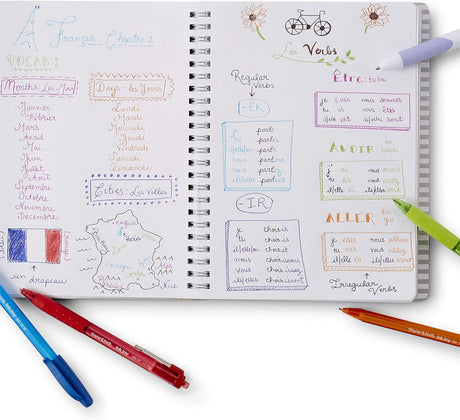 Français: Chapitre 1
VOCAB:
Months: Les Mois
Janvier
Février
Mars
Avril
Mai
Juin
Juillet
Août
Septembre
Octobre
Novembre
Décembre
Days: les Jours
Lundi
Mardi
Mercredi
Jeudi
Vendredi
Samedi
Dimanche
Cities: Les Villes
un drapeau
Nice
Les Verbs
Regular
Verbs
-ER
parle
parles
parle
parlons
parlez
parlent
-IR
je choisis
tu choisis
il/elle/on choisit
nous choisissons
vous choisissez
ils/elles choisissent
Être: to be
je suis nous sommes
tu es vous êtes
il/elle est ils/elles sont
AVOIR: to have
j'ai nous avons
tu as vous avez
il/elle a ils/elles ont
ALLER to go
je vais nous allons
tu vas vous allez
il/elle va ils/elles vont
Irregular
Verbs
Paper Mate InkJoy
Paper Mate InkJoy
Paper Mate InkJoy